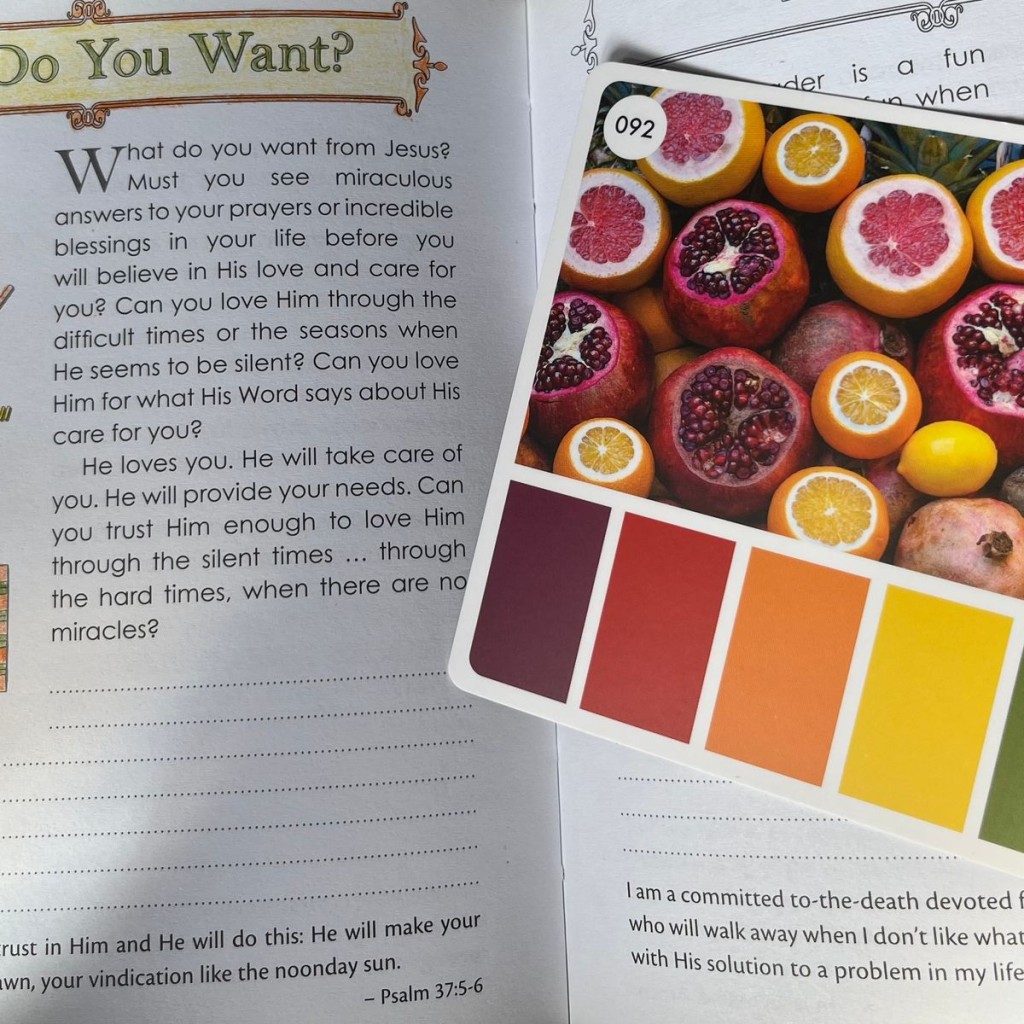 Do You Want?
What do you want from Jesus?
Must you see miraculous
answers to your prayers or incredible
blessings in your life before you
will believe in His love and care for
you? Can you love Him through the
difficult times or the seasons when
He seems to be silent? Can you love
Him for what His Word says about His
care for you?
He loves you. He will take care of
you. He will provide your needs. Can
you trust Him enough to love Him
through the silent times ... through
the hard times, when there are no
miracles?
trust in Him and He will do this: He will make your
your vindication like the noonday sun.
– Psalm 37:5-6
is a fun
when
092
I am a committed to-the-death devoted
who will walk away when I don't like what
with His solution to a problem in my life